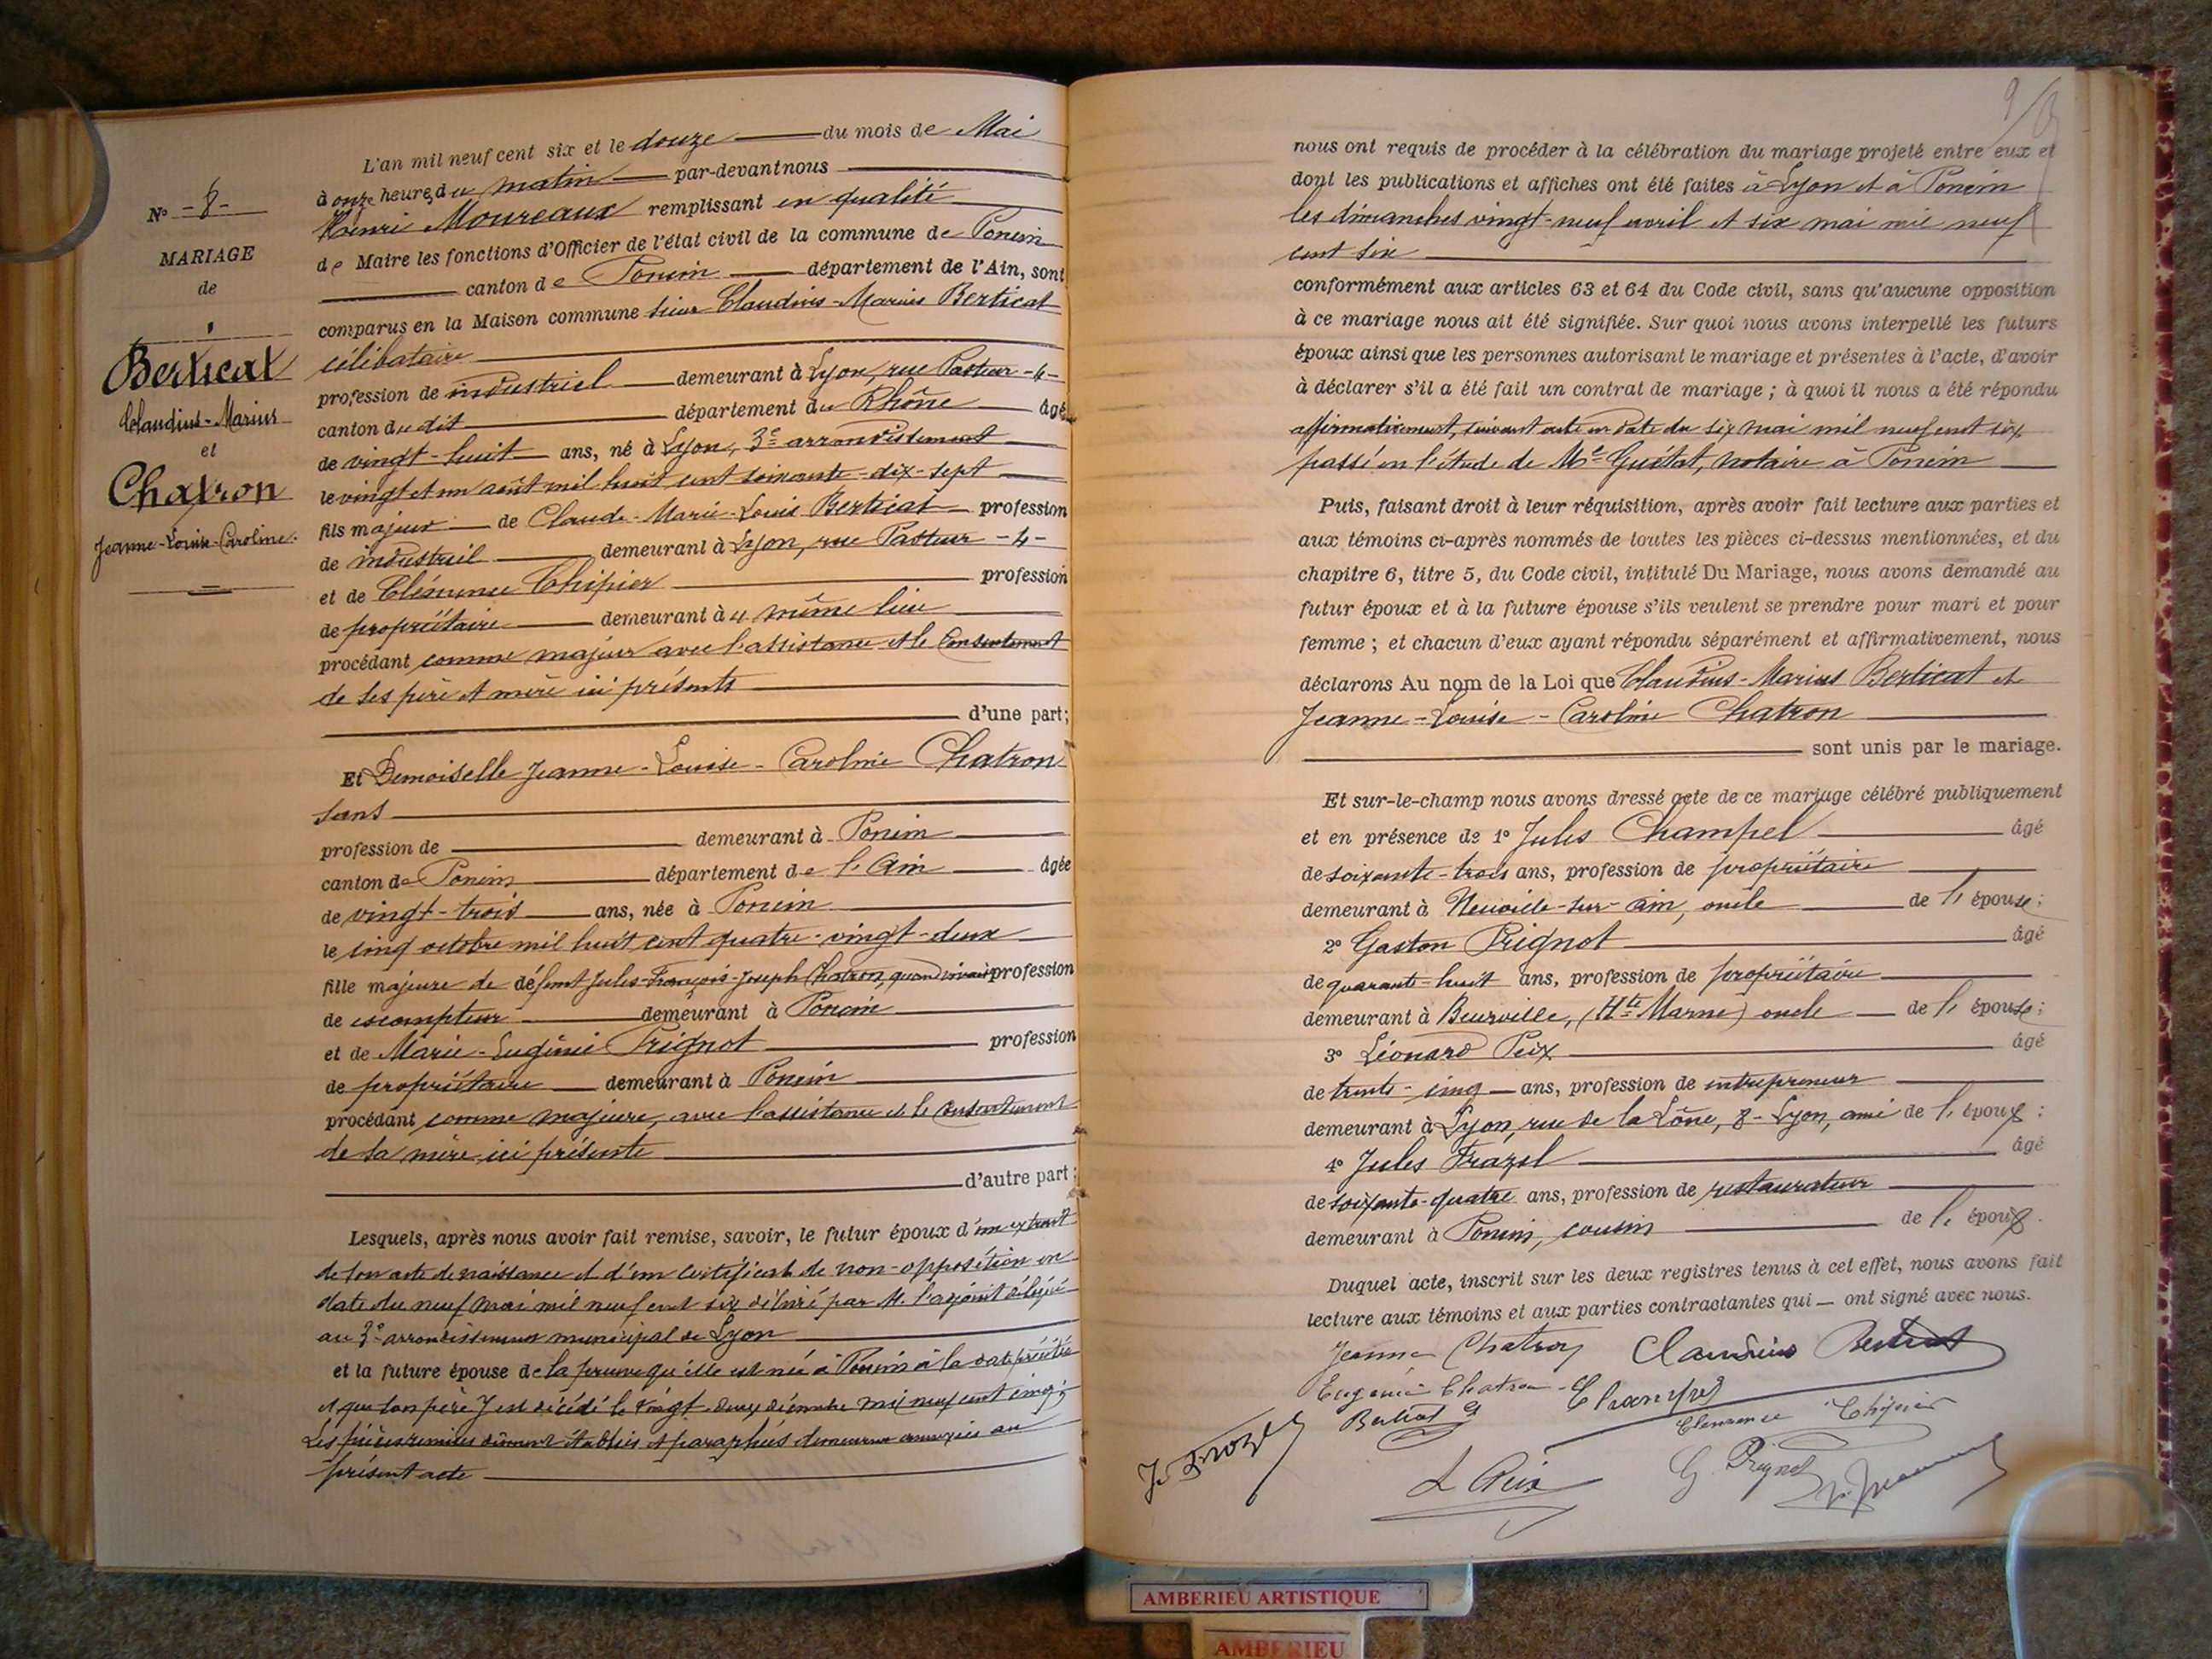 N° - 8 -
MARIAGE
de
Berticat
Claudius-Marius
et
Chatron
Jeanne-Louise-Caroline.
L'an mil neuf cent six et le douze du mois de Mai
à onze heures du matin par-devant nous
Henri Moureaux remplissant en qualité
de Maire les fonctions d'Officier de l'état civil de la commune de Poncin
canton de Poncin département de l'Ain, sont
comparus en la Maison commune sieur Claudius-Marius Berticat
célibataire
profession de industriel demeurant à Lyon, rue Pasteur - 4 -
canton du dit département du Rhône âgé
de vingt-huit ans, né à Lyon, 3e arrondissement
le vingt et un août mil huit cent soixante-dix-sept
fils majeur de Claude-Marie-Louis Berticat profession
de industriel demeurant à Lyon, rue Pasteur - 4 -
et de Clémence Chipier profession
de propriétaire demeurant à même lieu
procédant comme majeur avec l'assistance et le consentement
de ses père et mère ici présents
d'une part;
Et Demoiselle Jeanne-Louise-Caroline Chatron
sans
profession de demeurant à Poncin
canton de Poncin département de l'Ain âgée
de vingt-trois ans, née à Poncin
le cinq octobre mil huit cent quatre-vingt-deux
fille majeure de défunt Jules-François-Joseph Chatron, quand vivait profession
de escompteur demeurant à Poncin
et de Marie-Eugénie Prignot profession
de propriétaire demeurant à Poncin
procédant comme majeure, avec l'assistance et le consentement
de sa mère ici présente
d'autre part;
Lesquels, après nous avoir fait remise, savoir, le futur époux d'un extrait
de son acte de naissance et d'un certificat de non-opposition en
date du neuf mai mil neuf cent six délivré par M. l'adjoint délégué
au 3e arrondissement municipal de Lyon
et la future épouse de la preuve qu'elle est née à Poncin à la date précitée
et que son père y est décédé le vingt-deux décembre mil neuf cent cinq;
Les pièces remises dûment établies et paraphées demeurent annexées au
présent acte
9
nous ont requis de procéder à la célébration du mariage projeté entre eux et
dont les publications et affiches ont été faites à Lyon et à Poncin
les dimanches vingt-neuf avril et six mai mil neuf
cent six
conformément aux articles 63 et 64 du Code civil, sans qu'aucune opposition
à ce mariage nous ait été signifiée. Sur quoi nous avons interpellé les futurs
époux ainsi que les personnes autorisant le mariage et présentes à l'acte, d'avoir
à déclarer s'il a été fait un contrat de mariage ; à quoi il nous a été répondu
affirmativement, suivant acte en date du six mai mil neuf cent six
passé en l'étude de Me Guitat, notaire à Poncin
Puis, faisant droit à leur réquisition, après avoir fait lecture aux parties et
aux témoins ci-après nommés de toutes les pièces ci-dessus mentionnées, et du
chapitre 6, titre 5, du Code civil, intitulé Du Mariage, nous avons demandé au
futur époux et à la future épouse s'ils veulent se prendre pour mari et pour
femme ; et chacun d'eux ayant répondu séparément et affirmativement, nous
déclarons Au nom de la Loi que Claudius-Marius Berticat et
Jeanne-Louise-Caroline Chatron
sont unis par le mariage.
Et sur-le-champ nous avons dressé acte de ce mariage célébré publiquement
et en présence de 1° Jules Champel âgé
de soixante-trois ans, profession de propriétaire
demeurant à Neuville-sur-Ain, oncle de l'épouse;
2° Gaston Prignot âgé
de quarante-huit ans, profession de propriétaire
demeurant à Beurville, (Hte Marne) oncle de l'épouse;
3° Léonard Peix âgé
de trente-cinq ans, profession de entrepreneur
demeurant à Lyon, rue de la Lône, 8 - Lyon, ami de l'époux;
4° Jules Frazel âgé
de soixante-quatre ans, profession de restaurateur
demeurant à Poncin, cousin de l'époux.
Duquel acte, inscrit sur les deux registres tenus à cet effet, nous avons fait
lecture aux témoins et aux parties contractantes qui ont signé avec nous.
Jeanne Chatron Claudius Berticat
Eugénie Chatron Champel
Berticat Clémence Chipier
L Peix G. Prignot
AMBERIEU ARTISTIQUE
AMBERIEU